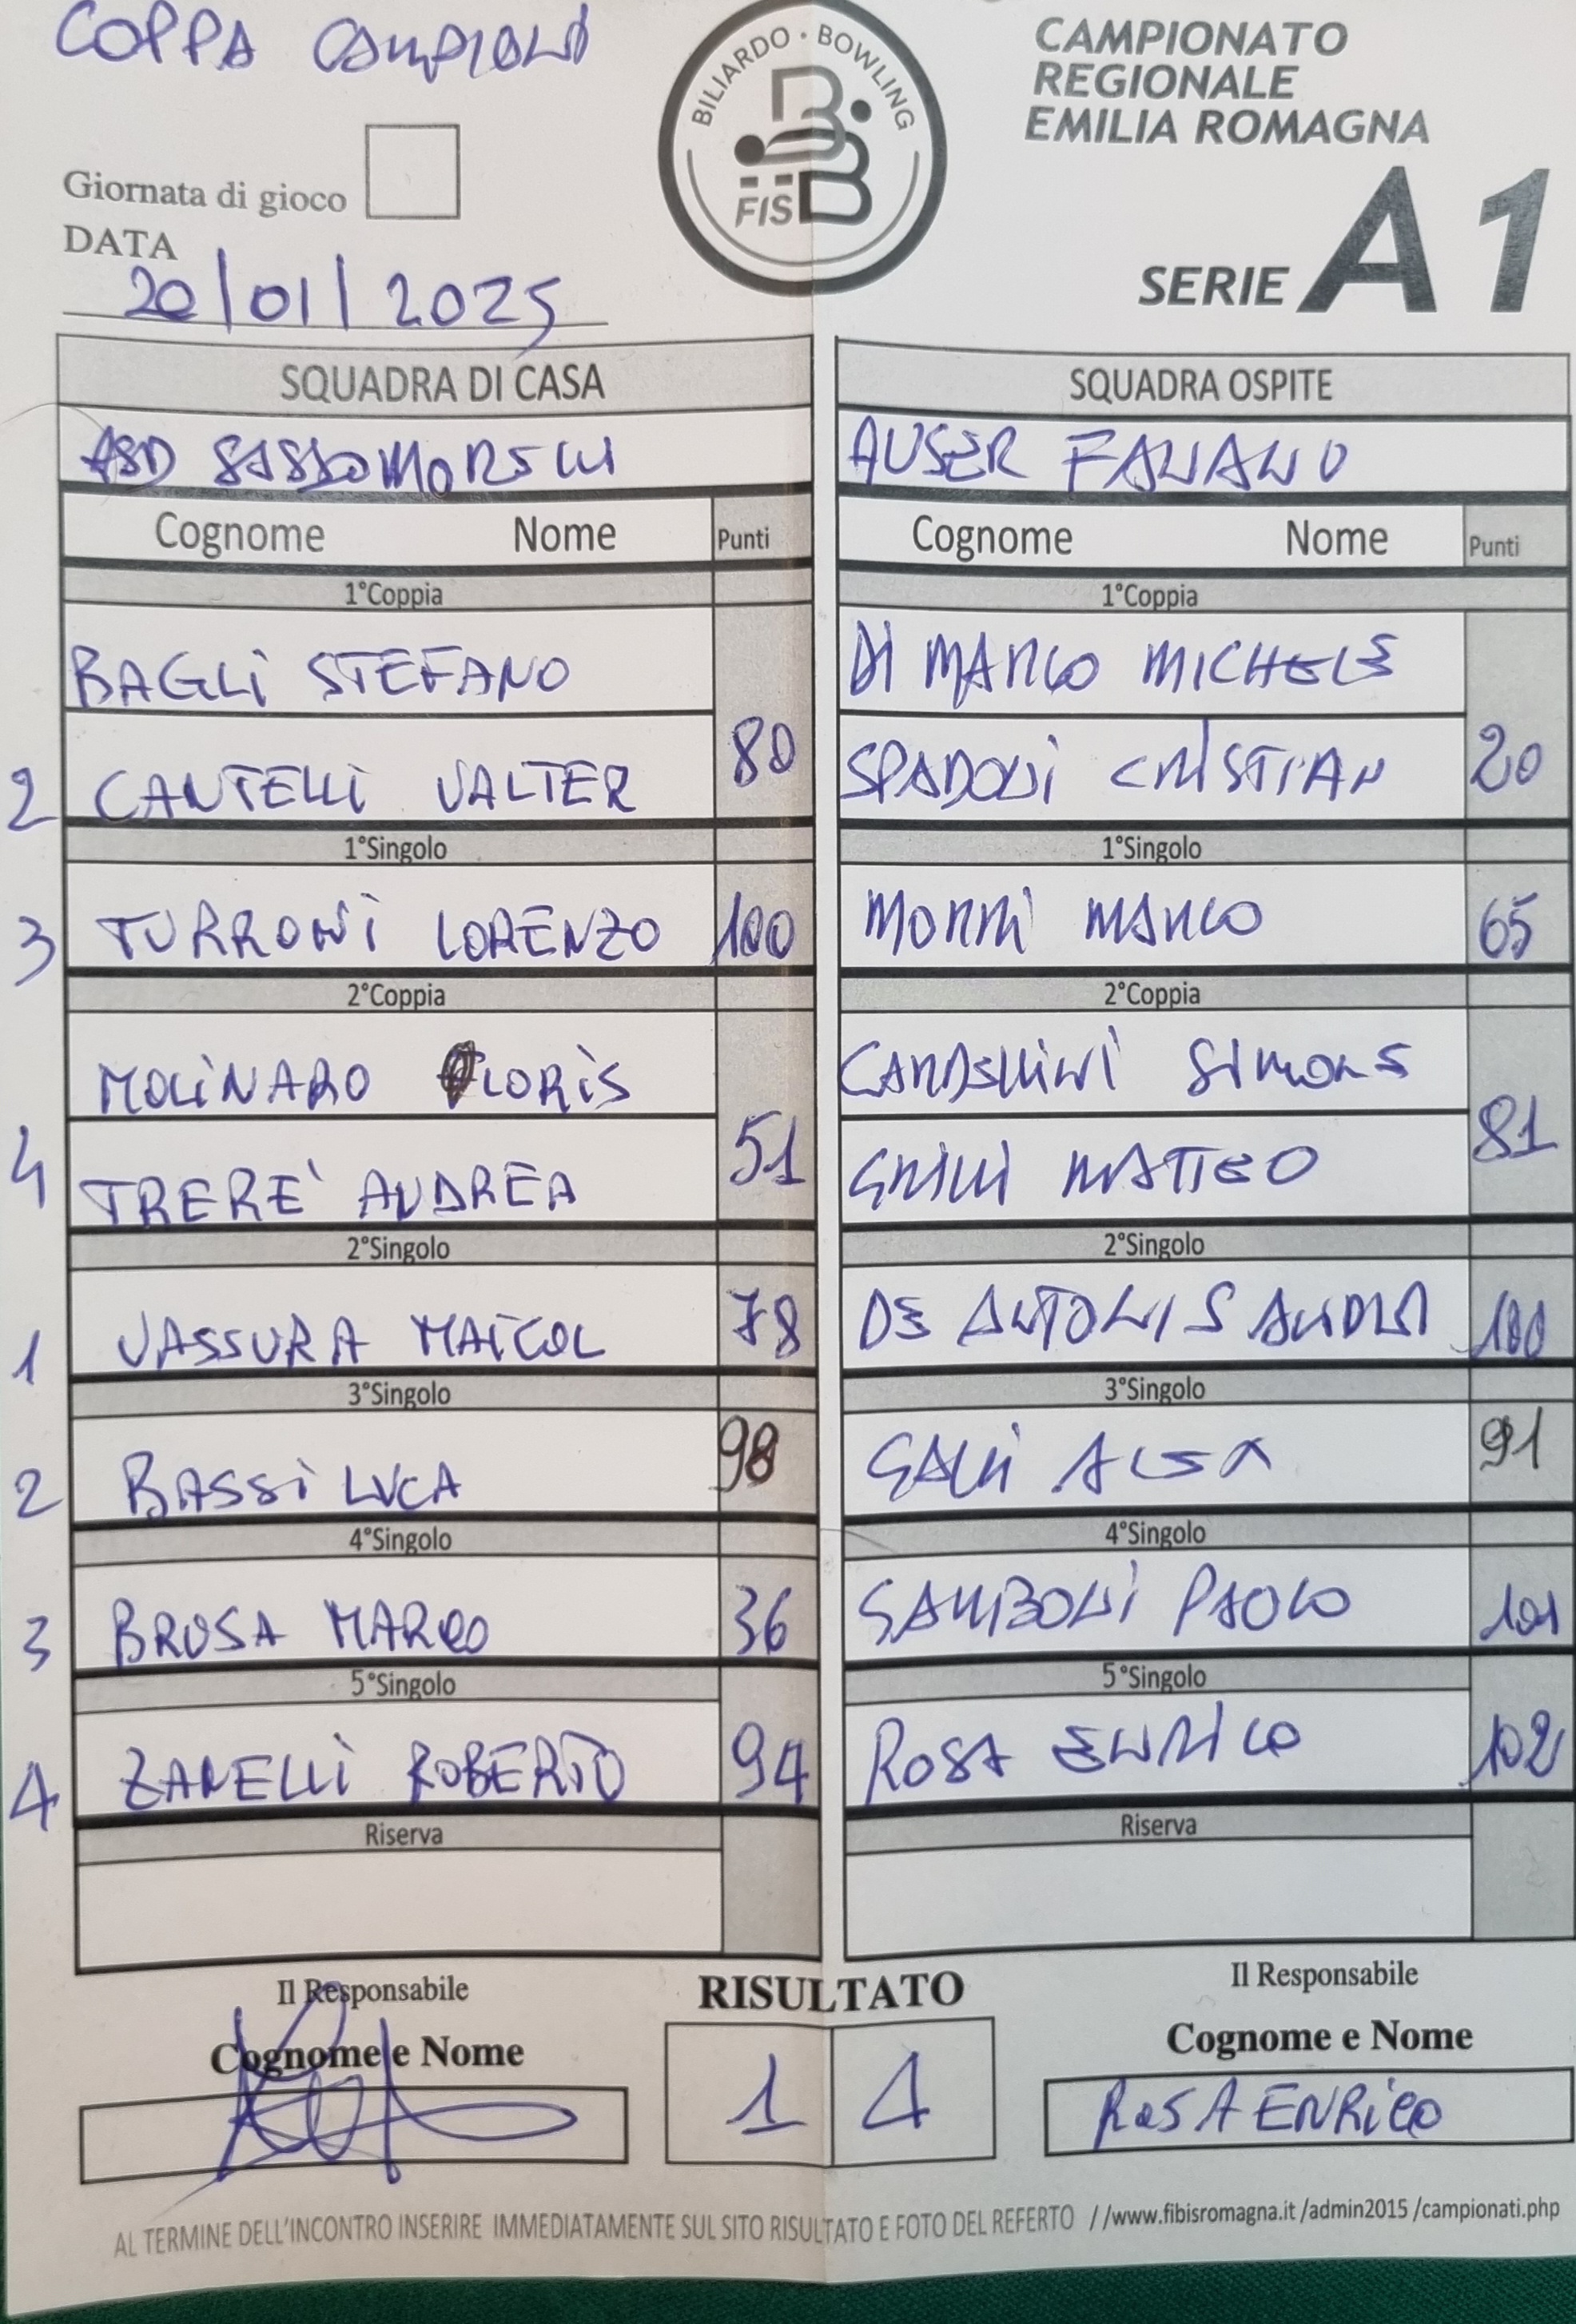 COPPA CAMPIONI
BILIARDO · BOWLING
FISBB
CAMPIONATO
REGIONALE
EMILIA ROMAGNA
SERIE A1
Giornata di gioco
DATA
20/01/2025
SQUADRA DI CASA
ASD SASSOMORELLI
Cognome Nome Punti
1°Coppia
BAGLI STEFANO
2 CANTELLI VALTER 80
1°Singolo
3 TURRONI LORENZO 100
2°Coppia
MOLINARO LORIS
4 TRERE' ANDREA 51
2°Singolo
1 VASSURA MAICOL 78
3°Singolo
2 BASSI LUCA 98
4°Singolo
3 BROSA MARCO 36
5°Singolo
4 ZANELLI ROBERTO 94
Riserva
SQUADRA OSPITE
AUSER FANANO
Cognome Nome Punti
1°Coppia
DI MARCO MICHELE
SPADONI CRISTIAN 20
1°Singolo
MORRI MARCO 65
2°Coppia
SIMONE
GRILLI MATTEO 81
2°Singolo
DE ANTONI SANDRA 100
3°Singolo
GALLI ALEX 91
4°Singolo
PAOLO 101
5°Singolo
ROSA ENRICO 102
Riserva
Il Responsabile
Cognome e Nome
RISULTATO
1 4
Il Responsabile
Cognome e Nome
ROSA ENRICO
AL TERMINE DELL'INCONTRO INSERIRE IMMEDIATAMENTE SUL SITO RISULTATO E FOTO DEL REFERTO //www.fibisromagna.it /admin2015 /campionati.php